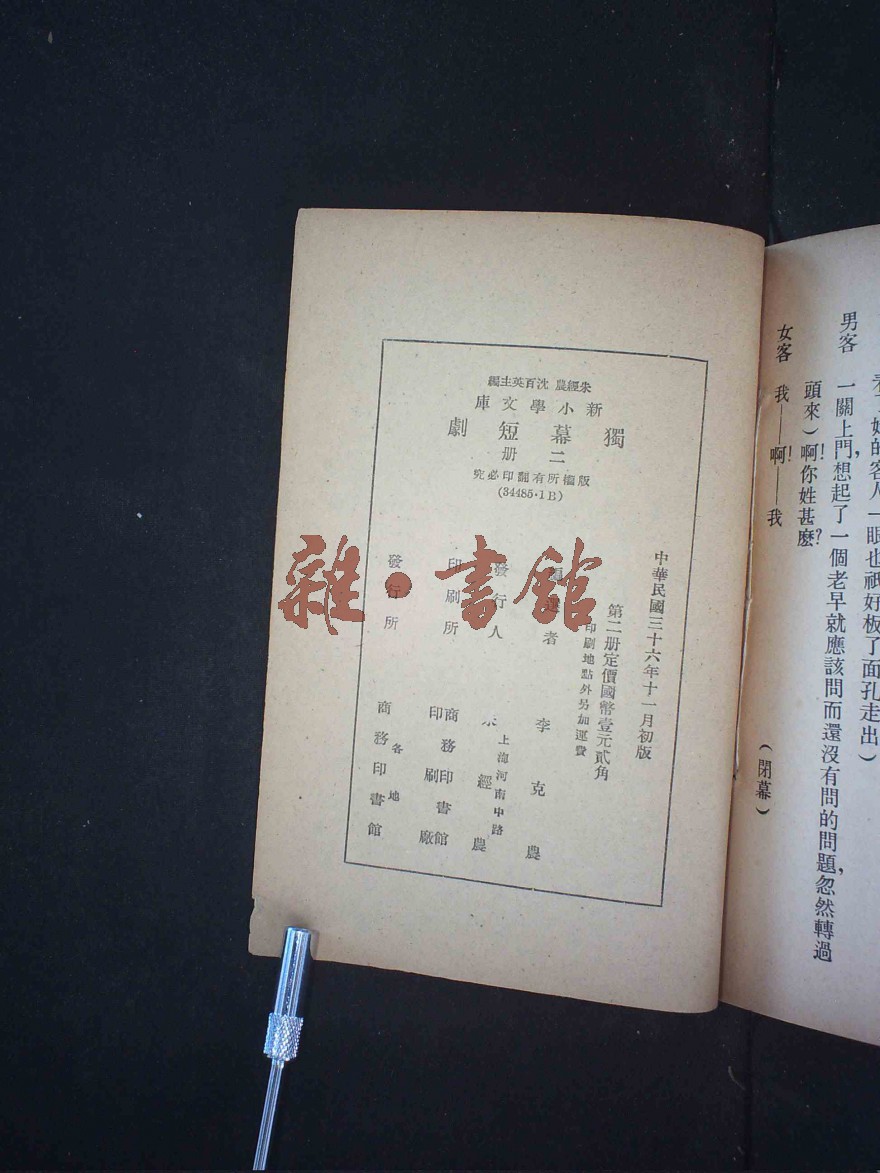 看了她的客人一眼也祇好板了面孔走出）
男客　一關上門，想起了一個老早就應該問而還沒有問的問題，忽然轉過
頭來）啊！你姓甚麼？
女客　我——啊！——我
（閉幕）
朱經農　沈百英主編
新小學文庫
獨幕短劇
二册
版權所有翻印必究
(34485·1B)
中華民國三十六年十一月初版
第二册定價國幣壹元貳角
印刷地點外另加運費
編選者　李克農
發行人　朱經農
上海河南中路
印刷所　商務印書館
印刷廠
發行所　商務印書館
各地
雜·書館